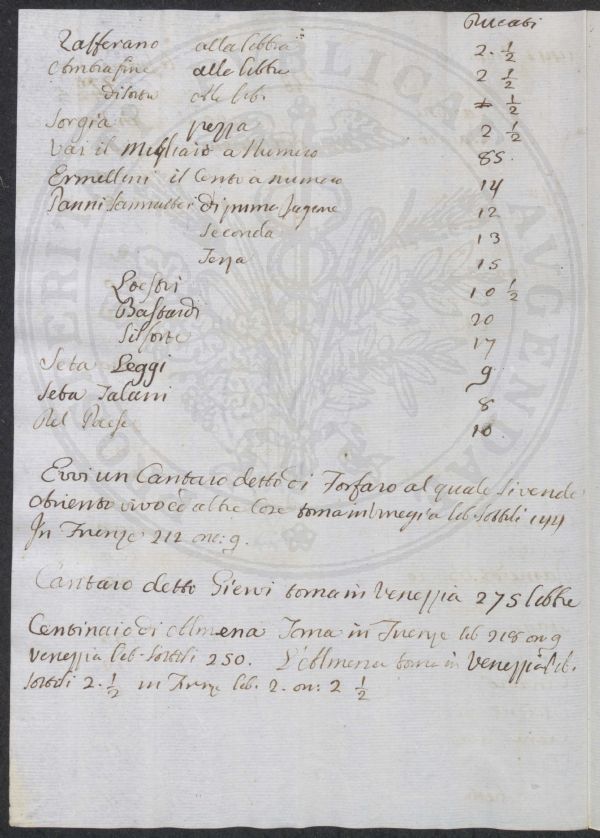 Ducati
Zafferano alla libbra 2. 1/2
Ambra fine alla libbra 2 1/2
di sorta alla lib. 1/2
Sorgia pezza 2 1/2
Vai il Migliaio a Numero 85.
Ermellini il Cento a numero 14
Panni di prima ragione 12
Seconda 13
Terza 15
Loestri 10 1/2
Bastardi 20
17
Seta Leggi 9
Seta Talani 8
Del Paese 10
Evvi un Cantaro detto di Forfaro al quale si vende
Argento vivo ed altre Cose torna in Venezia lib. sottili 144
In Firenze 212 onc: 9.
Cantaro detto Giervi torna in Venezia 275 libbre
Centinaio di Almena Torna in Firenze lib 218 on 9
Venezia lib. Sottili 250. L'Almena torna in Venezia lib.
sottili 2. 1/2 in Firenze lib. 2. on: 2 1/2